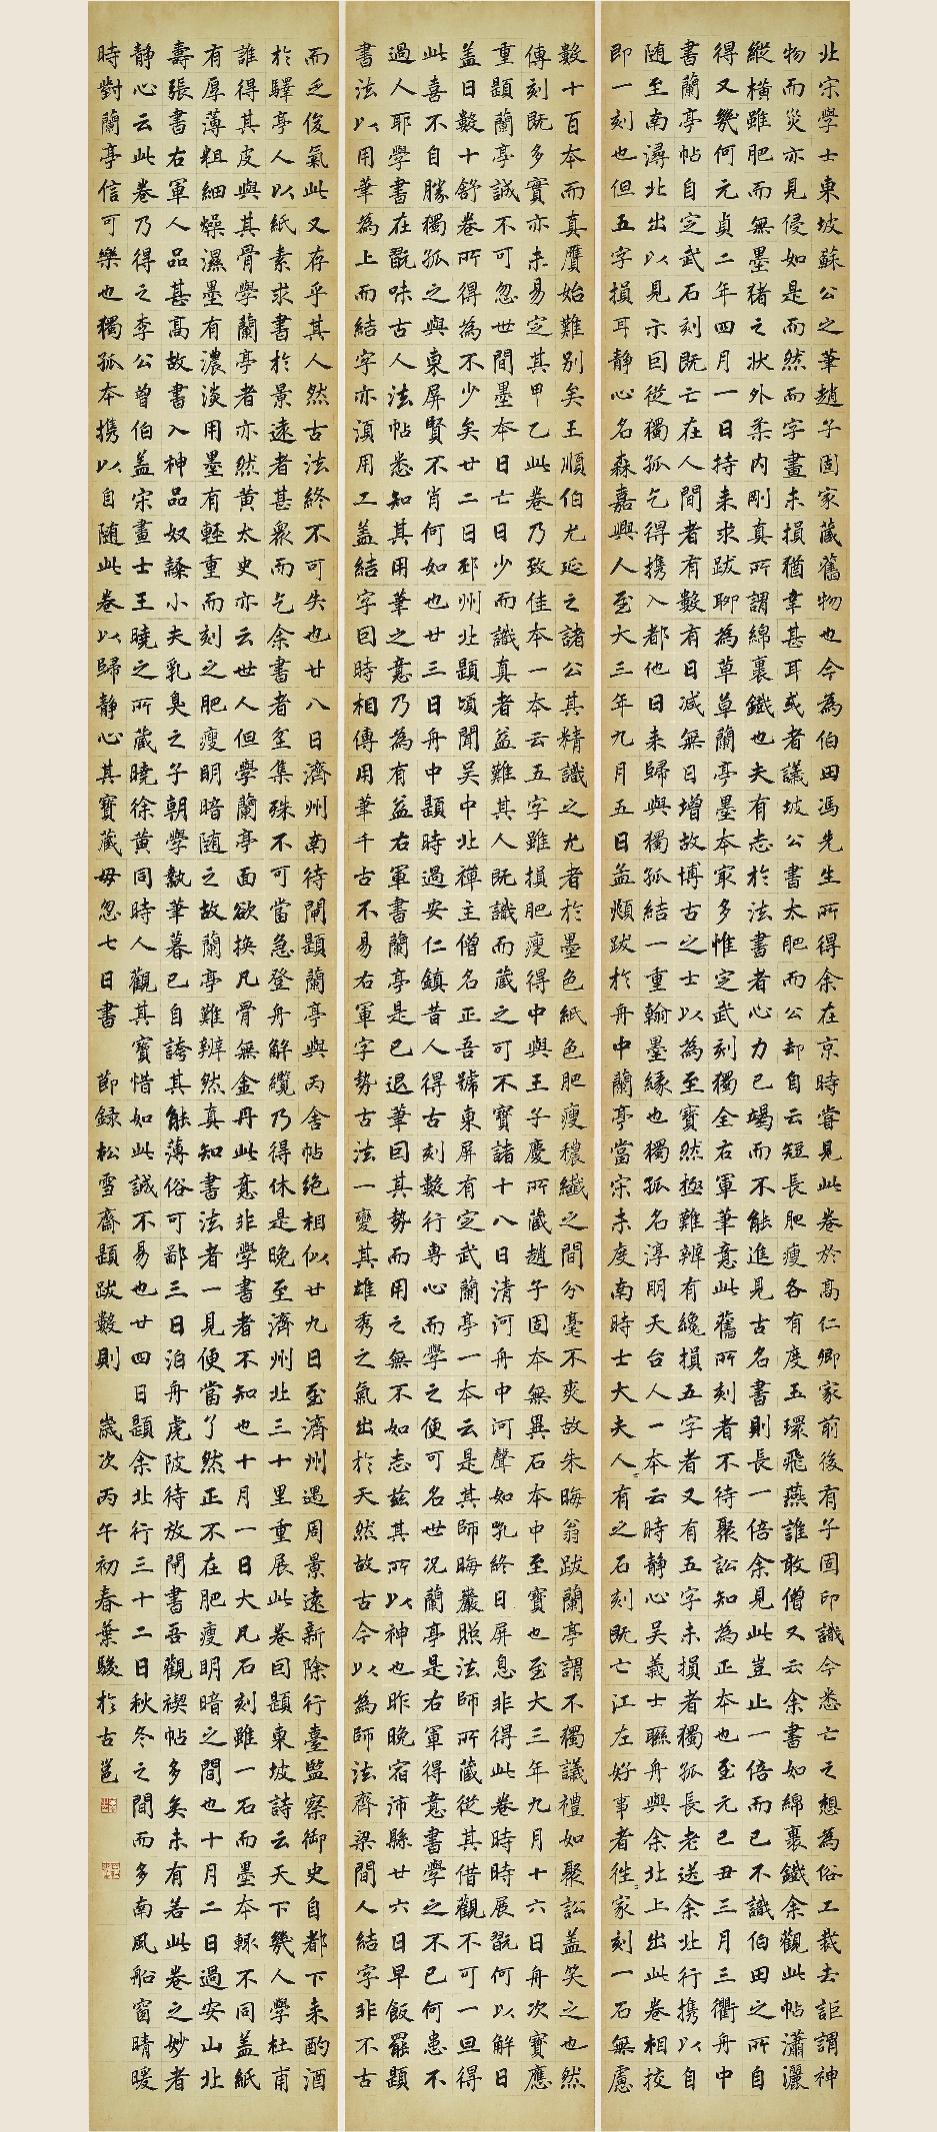 北宋學士東坡蘇公之筆趙子固家藏舊物也今為伯田馮先生所得余在京時嘗見此卷於高仁卿家前後有子固印識今悉亡之想為俗工裁去詎謂神
物而災亦見侵如是而然而字畫未損猶幸甚耳或者議坡公書太肥而公却自云短長肥瘦各有度玉環飛燕誰敢僧又云余書如綿裹鐵余觀此帖瀟灑
縱橫雖肥而無墨猪之狀外柔內剛真所謂綿裹鐵也夫有志於法書者心力已竭而不能進見古名書則長一倍余見此豈止一倍而已不識伯田之所自
得又幾何元貞二年四月一日持来求跋聊為草草蘭亭墨本家多惟定武刻獨全右軍筆意此舊所刻者不待聚訟知為正本也至元己丑三月三衢舟中
書蘭亭帖自定武石刻既亡在人間者有數有日減無日增故博古之士以為至寶然極難辨有纔損五字者又有五字未損者獨孤長老送余北行携以自
随至南潯北出以見示囙從獨孤乞得携入都他日来歸與獨孤結一重翰墨緣也獨孤名淳朋天台人一本云時静心吳義士聮舟與余北上出此卷相挍
即一刻也但五字損耳静心名森嘉興人至大三年九月五日孟頫跋於舟中蘭亭當宋未度南時士大夫人有之石刻既亡江左好事者徃家刻一石無慮
數十百本而真贗始難別矣王順伯尤延之諸公其精識之尤者於墨色紙色肥瘦穠纖之間分毫不爽故朱晦翁跋蘭亭謂不獨議禮如聚訟盖笑之也然
傳刻既多實亦未易定其甲乙此卷乃致佳本一本云五字雖損肥瘦得中與王子慶所藏趙子固本無異石本中至寶也至大三年九月十六日舟次寶應
重題蘭亭誠不可忽世間墨本日亡日少而識真者益難其人既識而藏之可不寶諸十八日清河舟中河聲如吼終日屏息非得此卷時時展翫何以解日
盖日數十舒卷所得為不少矣廿二日邳州北題頃聞吳中北禪主僧名正吾號東屏有定武蘭亭一本云是其師晦巖照法師所藏從其借觀不可一旦得
此喜不自勝獨孤之與東屏賢不肖何如也廿三日舟中題時過安仁鎮昔人得古刻數行專心而學之便可名世况蘭亭是右軍得意書學之不已何患不
過人耶學書在翫味古人法帖悉知其用筆之意乃為有益右軍書蘭亭是已退筆囙其勢而用之無不如志兹其所以神也昨晚宿沛縣廿六日早飯罷題
書法以用筆為上而結字亦湏用工盖結字囙時相傳用筆千古不易右軍字勢古法一變其雄秀之氣出於天然故古今以為師法齊梁間人結字非不古
而乏俊氣此又存乎其人然古法終不可失也廿八日濟州南待閘題蘭亭與丙舍帖絶相似廿九日至濟州遇周景遠新除行臺監察御史自都下来酌酒
於驛亭人以紙素求書於景遠者甚衆而乞余書者坌集殊不可當急登舟解纜乃得休是晚至濟州北三十里重展此卷囙題東坡詩云天下幾人學杜甫
誰得其皮與其骨學蘭亭者亦然黃太史亦云世人但學蘭亭面欲換凡骨無金丹此意非學書者不知也十月一日大凡石刻雖一石而墨本輒不同盖紙
有厚薄粗細燥濕墨有濃淡用墨有輕重而刻之肥瘦明暗随之故蘭亭難辨然真知書法者一見便當了然正不在肥瘦明暗之間也十月二日過安山北
壽張書右軍人品甚高故書入神品奴隸小夫乳臭之子朝學執筆暮已自誇其能薄俗可鄙三日泊舟虎陂待放閘書吾觀禊帖多矣未有若此卷之妙者
静心云此卷乃得之李公曾伯盖宋畫士王曉之所藏曉徐黃同時人觀其寶惜如此誠不易也廿四日題余北行三十二日秋冬之間而多南風船窗晴暖
時對蘭亭信可樂也獨孤本携以自随此卷以歸静心其寶藏毋忽七日書　節録松雪齋題跋數則　歲次丙午初春葉駿於古邕